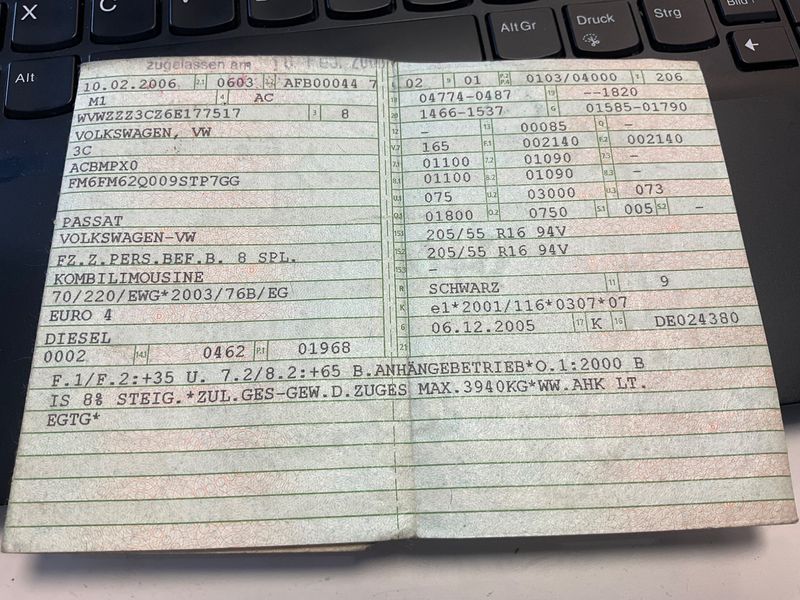 X
C
Alt Gr
Druck
Strg
Bild
Alt
zugelassen am
10.02.2006 2.1 0603 AFB00044 7
M1 4 AC
WVWZZZ3CZ6E177517 3 8
VOLKSWAGEN, VW
3C
ACBMPX0
FM6FM62Q009STP7GG
PASSAT
VOLKSWAGEN-VW
FZ.Z.PERS.BEF.B. 8 SPL.
KOMBILIMOUSINE
70/220/EWG*2003/76B/EG
EURO 4
DIESEL
0002 14.1 0462 P.1 01968
02 9 01 P.2 P.4 0103/04000 T 206
18 04774-0487 19 --1820
20 1466-1537 G 01585-01790
12 - 13 00085 Q -
V.7 165 F.1 002140 F.2 002140
7.1 01100 7.2 01090 7.3 -
8.1 01100 8.2 01090 8.3 -
U.1 075 U.2 03000 U.3 073
O.1 01800 O.2 0750 S.1 005 S.2 -
15.1 205/55 R16 94V
15.2 205/55 R16 94V
15.3 -
R SCHWARZ 11 9
K e1*2001/116*0307*07
6 06.12.2005 17 K 16 DE024380
21
F.1/F.2:+35 U. 7.2/8.2:+65 B.ANHÄNGEBETRIEB*O.1:2000 B
IS 8% STEIG.*ZUL.GES-GEW.D.ZUGES MAX.3940KG*WW.AHK LT.
EGTG*